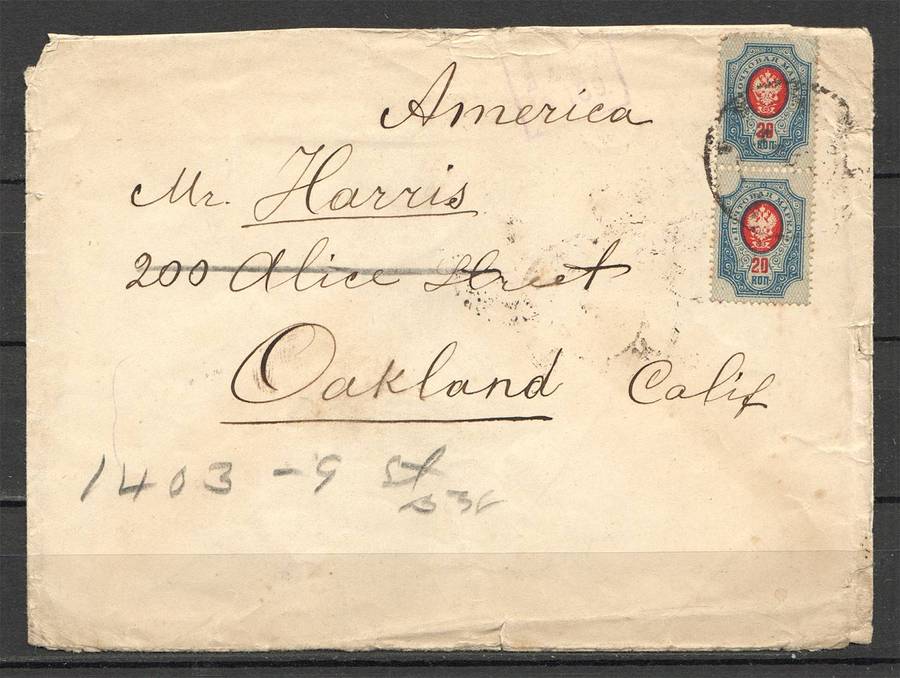 America
Mr. Harris
200 Alice Street
Oakland Calif
1403 - 9 St
ПОЧТОВАЯ МАРКА
20
КОП
ПОЧТОВАЯ МАРКА
20
КОП